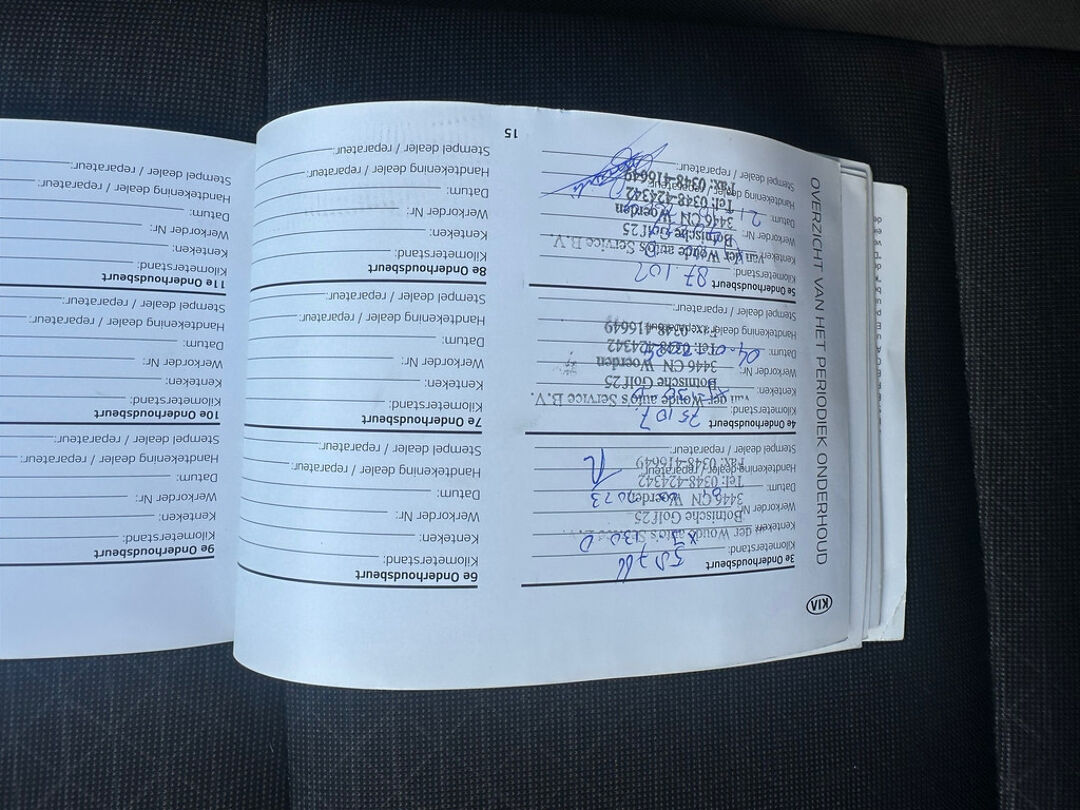 KIA
OVERZICHT VAN HET PERIODIEK ONDERHOUD
3e Onderhoudsbeurt
Kilometerstand:
Kenteken:
Werkorder Nr:
Datum:
Handtekening dealer / reparateur:
Stempel dealer / reparateur:
van der Woude auto's Service B.V.
Botnische Golf 25
3446 CN Woerden
Tel: 0348-424342
Fax: 0348-416649
4e Onderhoudsbeurt
Kilometerstand: 75107
Kenteken:
Werkorder Nr:
Datum:
Handtekening dealer / reparateur:
Stempel dealer / reparateur:
van der Woude auto's Service B.V.
Botnische Golf 25
3446 CN Woerden
Tel: 0348-424342
Fax: 0348-416649
5e Onderhoudsbeurt
Kilometerstand: 87.102
Kenteken:
Werkorder Nr:
Datum:
Handtekening dealer / reparateur:
Stempel dealer / reparateur:
van der Woude auto's Service B.V.
Botnische Golf 25
3446 CN Woerden
Tel: 0348-424342
Fax: 0348-416649
6e Onderhoudsbeurt
Kilometerstand:
Kenteken:
Werkorder Nr:
Datum:
Handtekening dealer / reparateur:
Stempel dealer / reparateur:
7e Onderhoudsbeurt
Kilometerstand:
Kenteken:
Werkorder Nr:
Datum:
Handtekening dealer / reparateur:
Stempel dealer / reparateur:
8e Onderhoudsbeurt
Kilometerstand:
Kenteken:
Werkorder Nr:
Datum:
Handtekening dealer / reparateur:
Stempel dealer / reparateur:
15
9e Onderhoudsbeurt
Kilometerstand:
Kenteken:
Werkorder Nr:
Datum:
Handtekening dealer / reparateur:
Stempel dealer / reparateur:
10e Onderhoudsbeurt
Kilometerstand:
Kenteken:
Werkorder Nr:
Datum:
Handtekening dealer / reparateur:
Stempel dealer / reparateur:
11e Onderhoudsbeurt
Kilometerstand:
Kenteken:
Werkorder Nr:
Datum:
Handtekening dealer / reparateur:
Stempel dealer / reparateur: